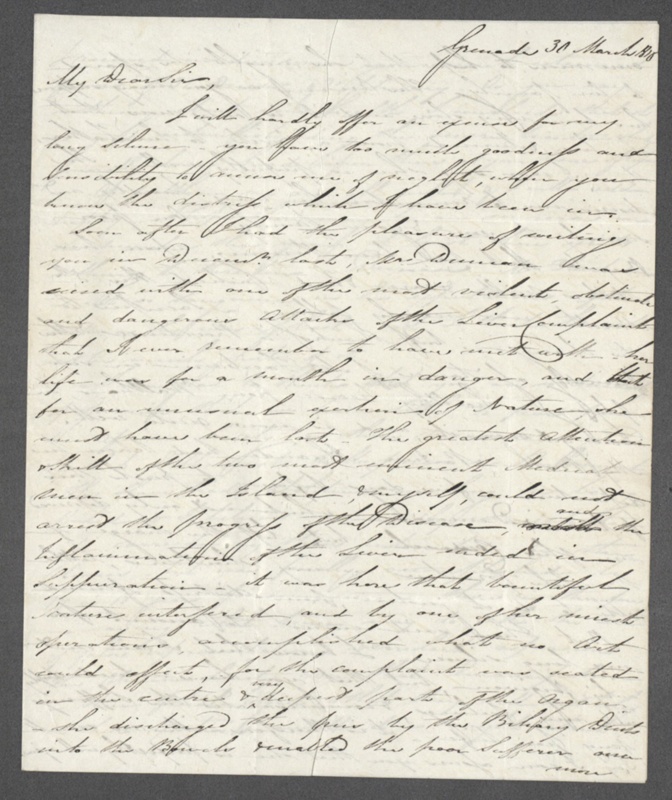 Grenada 30 March 1816
My Dear Sir,
I will hardly offer an excuse for my
long silence - you have too much goodness and
Sensibility to accuse me of neglect, when you
know the distress which I have been in.
Soon after I had the pleasure of writing
you in Decemr. last Mrs Duncan was
seised with one of the most violent, obstinate
and dangerous attacks of the Liver Complaint
that I ever remember to have met with - her
life was for a month in danger, and but
for an unusual exertion of Nature, she
must have been lost - The greatest attention
& skill of the two most eminent Medical
men in the Island, & myself, could not
arrest the progress of the Disease, and the
Inflammation of the Liver ended in
Suppuration - it was here that bountiful
Nature interfered, and by one of her nicest
operations, accomplished what no Art
could effect, for the complaint was seated
in the centre & very deepest part of the Organ -
- she discharged the pus by the Biliary Ducts
into the Bowels & enabled the poor Sufferer once
more